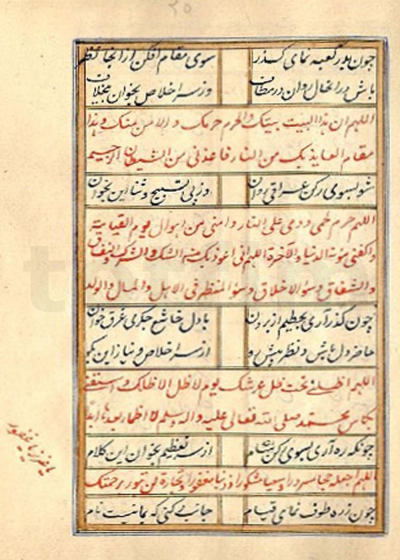 چون بدر کعبه نمای گذر سوی مقام افکن از آنجا نظر
باش در آنحال وان در مطان وز سر اخلاص بخوان بخلان
اللهم ان هذا البیت بیتک والحرم حرمک والامن منک وهذا
مقام العایذ بک من النار فاعذنی من الشیطان الرجیم
شو بسوی رکن عراقی روان در پی تسبیح وثنا این بخوان
اللهم حرم لحمی ودمی علی النار وامنی من اهوال یوم القیامة
واکفنی مؤنة الدنیا والآخرة اللهم انی اعوذ بک من الشک والشرک والنفاق
والشقاق وسوء الاخلاق وسوء المنظر فی الاهل والمال والولد
چون گذر آری بحطیم از برون بادل خاشع جگری غرق خون
حاضر دل باش ونظر پیش از سر اخلاص ونیاز این بگو
اللهم اظلنی تحت ظل عرشک یوم لا ظل الا ظلک واسقنی
بکاس محمد صلی الله تعالی علیه واله وسلم لا اظما بعدها ابدا
چونکه ره آری بسوی رکن از سر تعظیم بخوان این کلام
اللهم اجعله حجا مبرورا وسعیا مشکورا وذنبا مغفورا وتجارة لن تبور برحمتک
یا عزیز یا غفور
چون زره طوف نمای قیام جانب رکنی که یمانیست نام